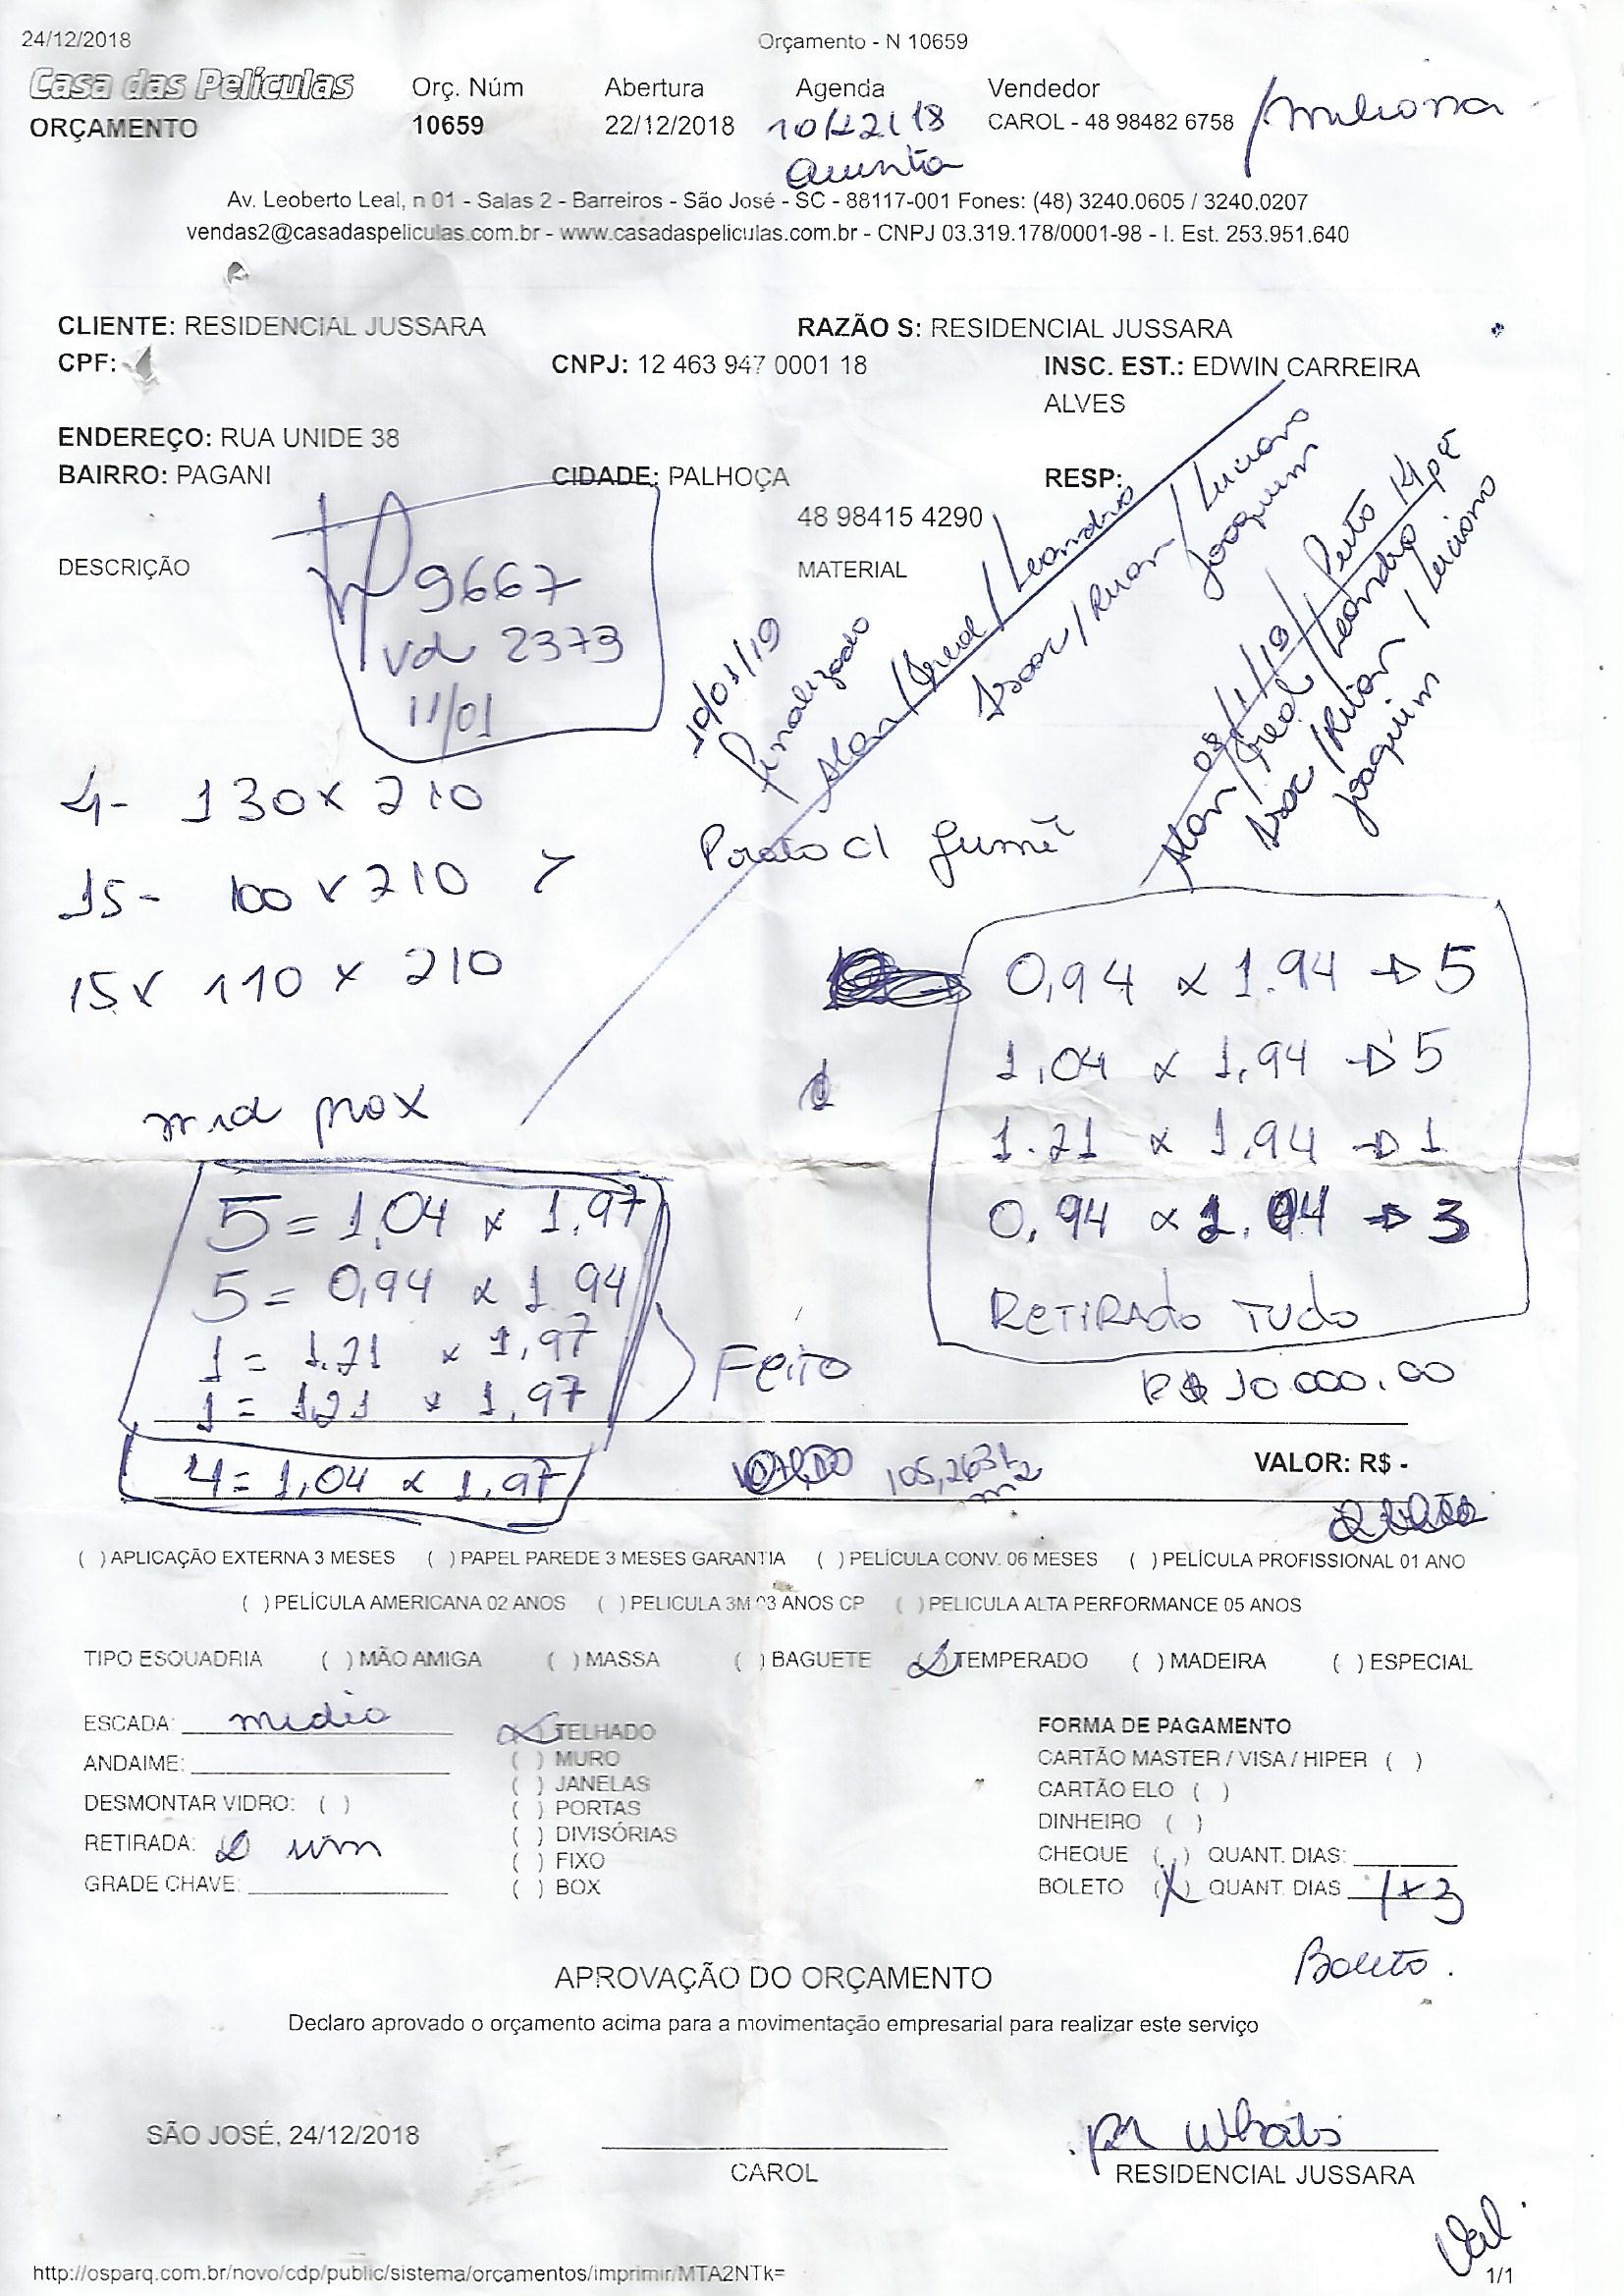 24/12/2018 Orçamento - N 10659
Casa das Películas Orç. Núm Abertura Agenda Vendedor
ORÇAMENTO 10659 22/12/2018 CAROL - 48 98482 6758
Av. Leoberto Leal, n 01 - Salas 2 - Barreiros - São José - SC - 88117-001 Fones: (48) 3240.0605 / 3240.0207
vendas2@casadaspeliculas.com.br - www.casadaspeliculas.com.br - CNPJ 03.319.178/0001-98 - I. Est. 253.951.640
CLIENTE: RESIDENCIAL JUSSARA RAZÃO S: RESIDENCIAL JUSSARA
CPF: CNPJ: 12 463 947 0001 18 INSC. EST.: EDWIN CARREIRA
ALVES
ENDEREÇO: RUA UNIDE 38
BAIRRO: PAGANI CIDADE: PALHOÇA RESP:
48 98415 4290
DESCRIÇÃO MATERIAL
9667
vd 2373
11/01
10/01/19
Finalizado
Alan / Fred / Leandro
Isac / Ruan / Luciano
Joaquim
08/1/19
Alan / Fred / Leandro
Isac / Ruan / Luciano
Joaquim
4- 130 x 210
15- 100 x 210
15 x 110 x 210
0,94 x 1.94 → 5
1,04 x 1,94 → 5
1.21 x 1,94 → 1
0,94 x 1.04 → 3
RETIRADO TUDO
5 = 1,04 x 1,97
5 = 0,94 x 1 94
1 = 1.21 x 1,97
1 = 1,21 x 1,97
FEITO
R$ 10.000,00
4 = 1,04 x 1,97
105,2631 m2
VALOR: R$ -
( ) APLICAÇÃO EXTERNA 3 MESES ( ) PAPEL PAREDE 3 MESES GARANTIA ( ) PELÍCULA CONV. 06 MESES ( ) PELÍCULA PROFISSIONAL 01 ANO
( ) PELÍCULA AMERICANA 02 ANOS ( ) PELICULA 3M 03 ANOS CP ( ) PELICULA ALTA PERFORMANCE 05 ANOS
TIPO ESQUADRIA ( ) MÃO AMIGA ( ) MASSA ( ) BAGUETE ( ) TEMPERADO ( ) MADEIRA ( ) ESPECIAL
ESCADA: media
ANDAIME:
DESMONTAR VIDRO: ( )
RETIRADA: sim
GRADE CHAVE:
( ) TELHADO
( ) MURO
( ) JANELAS
( ) PORTAS
( ) DIVISÓRIAS
( ) FIXO
( ) BOX
FORMA DE PAGAMENTO
CARTÃO MASTER / VISA / HIPER ( )
CARTÃO ELO ( )
DINHEIRO ( )
CHEQUE ( ) QUANT. DIAS:
BOLETO (X) QUANT. DIAS 1+3
Boleto.
APROVAÇÃO DO ORÇAMENTO
Declaro aprovado o orçamento acima para a movimentação empresarial para realizar este serviço
SÃO JOSÉ, 24/12/2018
CAROL
por Whats
RESIDENCIAL JUSSARA
http://osparq.com.br/novo/cdp/public/sistema/orcamentos/imprimir/MTA2NTk= 1/1